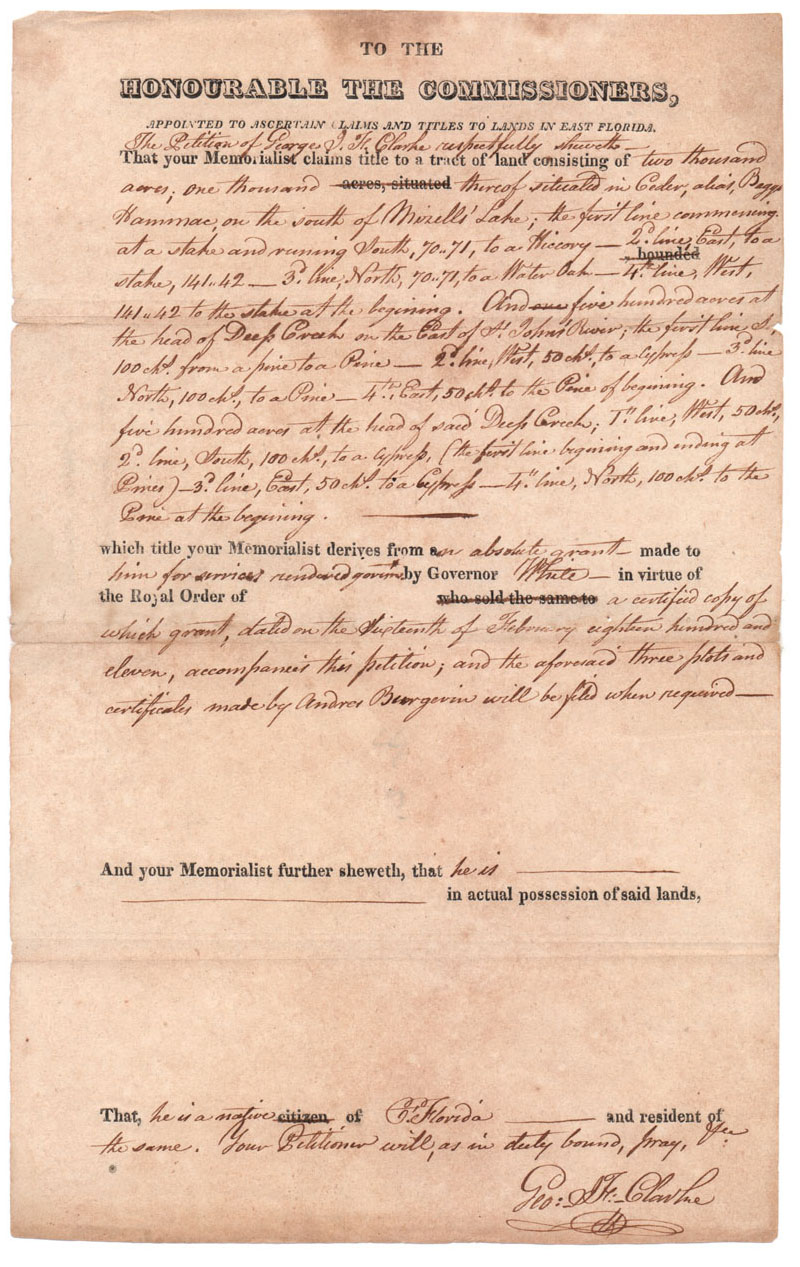 TO THE
HONOURABLE THE COMMISSIONERS,
APPOINTED TO ASCERTAIN CLAIMS AND TITLES TO LANDS IN EAST FLORIDA.
The Petition of George J. F. Clarke respectfully sheweth—
That your Memorialist claims title to a tract of land consisting of two thousand
acres; one thousand acres, situated thereof situated in Ceder, alias, Beggs
Hammac, on the south of Mizell's Lake; the first line commencing
at a stake and runing South, 70..71, to a Hiccory — 2d. line, East, to a
, bounded
stake, 141..42 — 3d. line, North, 70..71, to a Water Oak — 4th. line, West,
141..42 to the stake at the begining. And one five hundred acres at
the head of Deep Creek on the East of St. John's River; the first line S.,
100 chs. from a pine to a Pine — 2d. line, West, 50 chs., to a Cypress — 3d. line
North, 100 chs., to a Pine — 4th., East, 50 chs. to the Pine of begining. And
five hundred acres at the head of said Deep Creek; 1st. line, West, 50 chs.,
2d. line, South, 100 chs., to a Cypress, (the first line begining and ending at
Pines) — 3d. line, East, 50 chs. to a Cypress — 4th. line, North, 100 chs. to the
Pine at the begining.
which title your Memorialist derives from an absolute grant — made to
him for services rendered by Governor White — in virtue of
the Royal Order of who sold the same to a certified copy of
which grant, dated on the Sixteenth of February eighteen hundred and
eleven, accompaneis this petition; and the aforesaid three plots and
certificates made by Andres Burgevin will be filed when required —
And your Memorialist further sheweth, that he is
in actual possession of said lands,
That, he is a native citizen of E. Florida and resident of
the same. Your Petitioner will, as in duty bound, pray, &c.
Geo: J. F. Clarke